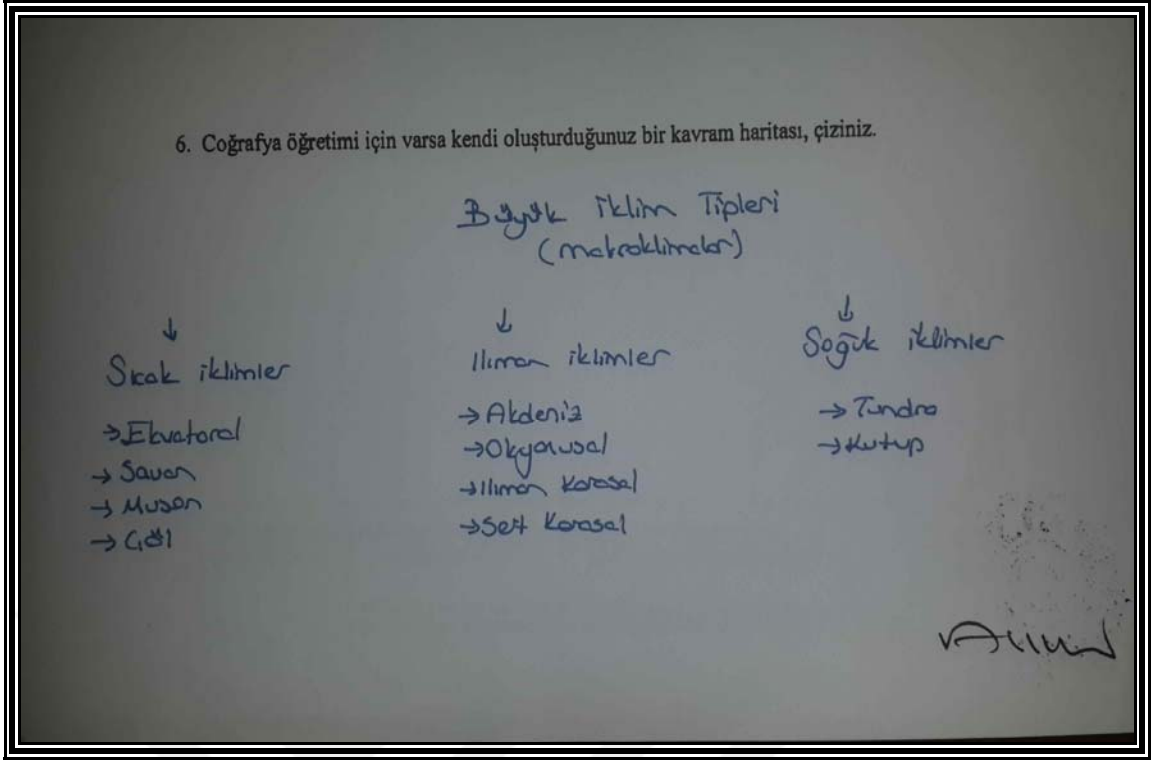 6. Coğrafya öğretimi için varsa kendi oluşturduğunuz bir kavram haritası, çiziniz.
Büyük İklim Tipleri
(makroklimalar)
↓ ↓ ↓
Sıcak iklimler
→Ekvatoral
→ Savan
→ Muson
→ Çöl
Ilıman iklimler
→Akdeniz
→Okyanusal
→Ilıman Karasal
→Sert Karasal
Soğuk iklimler
→Tundra
→Kutup